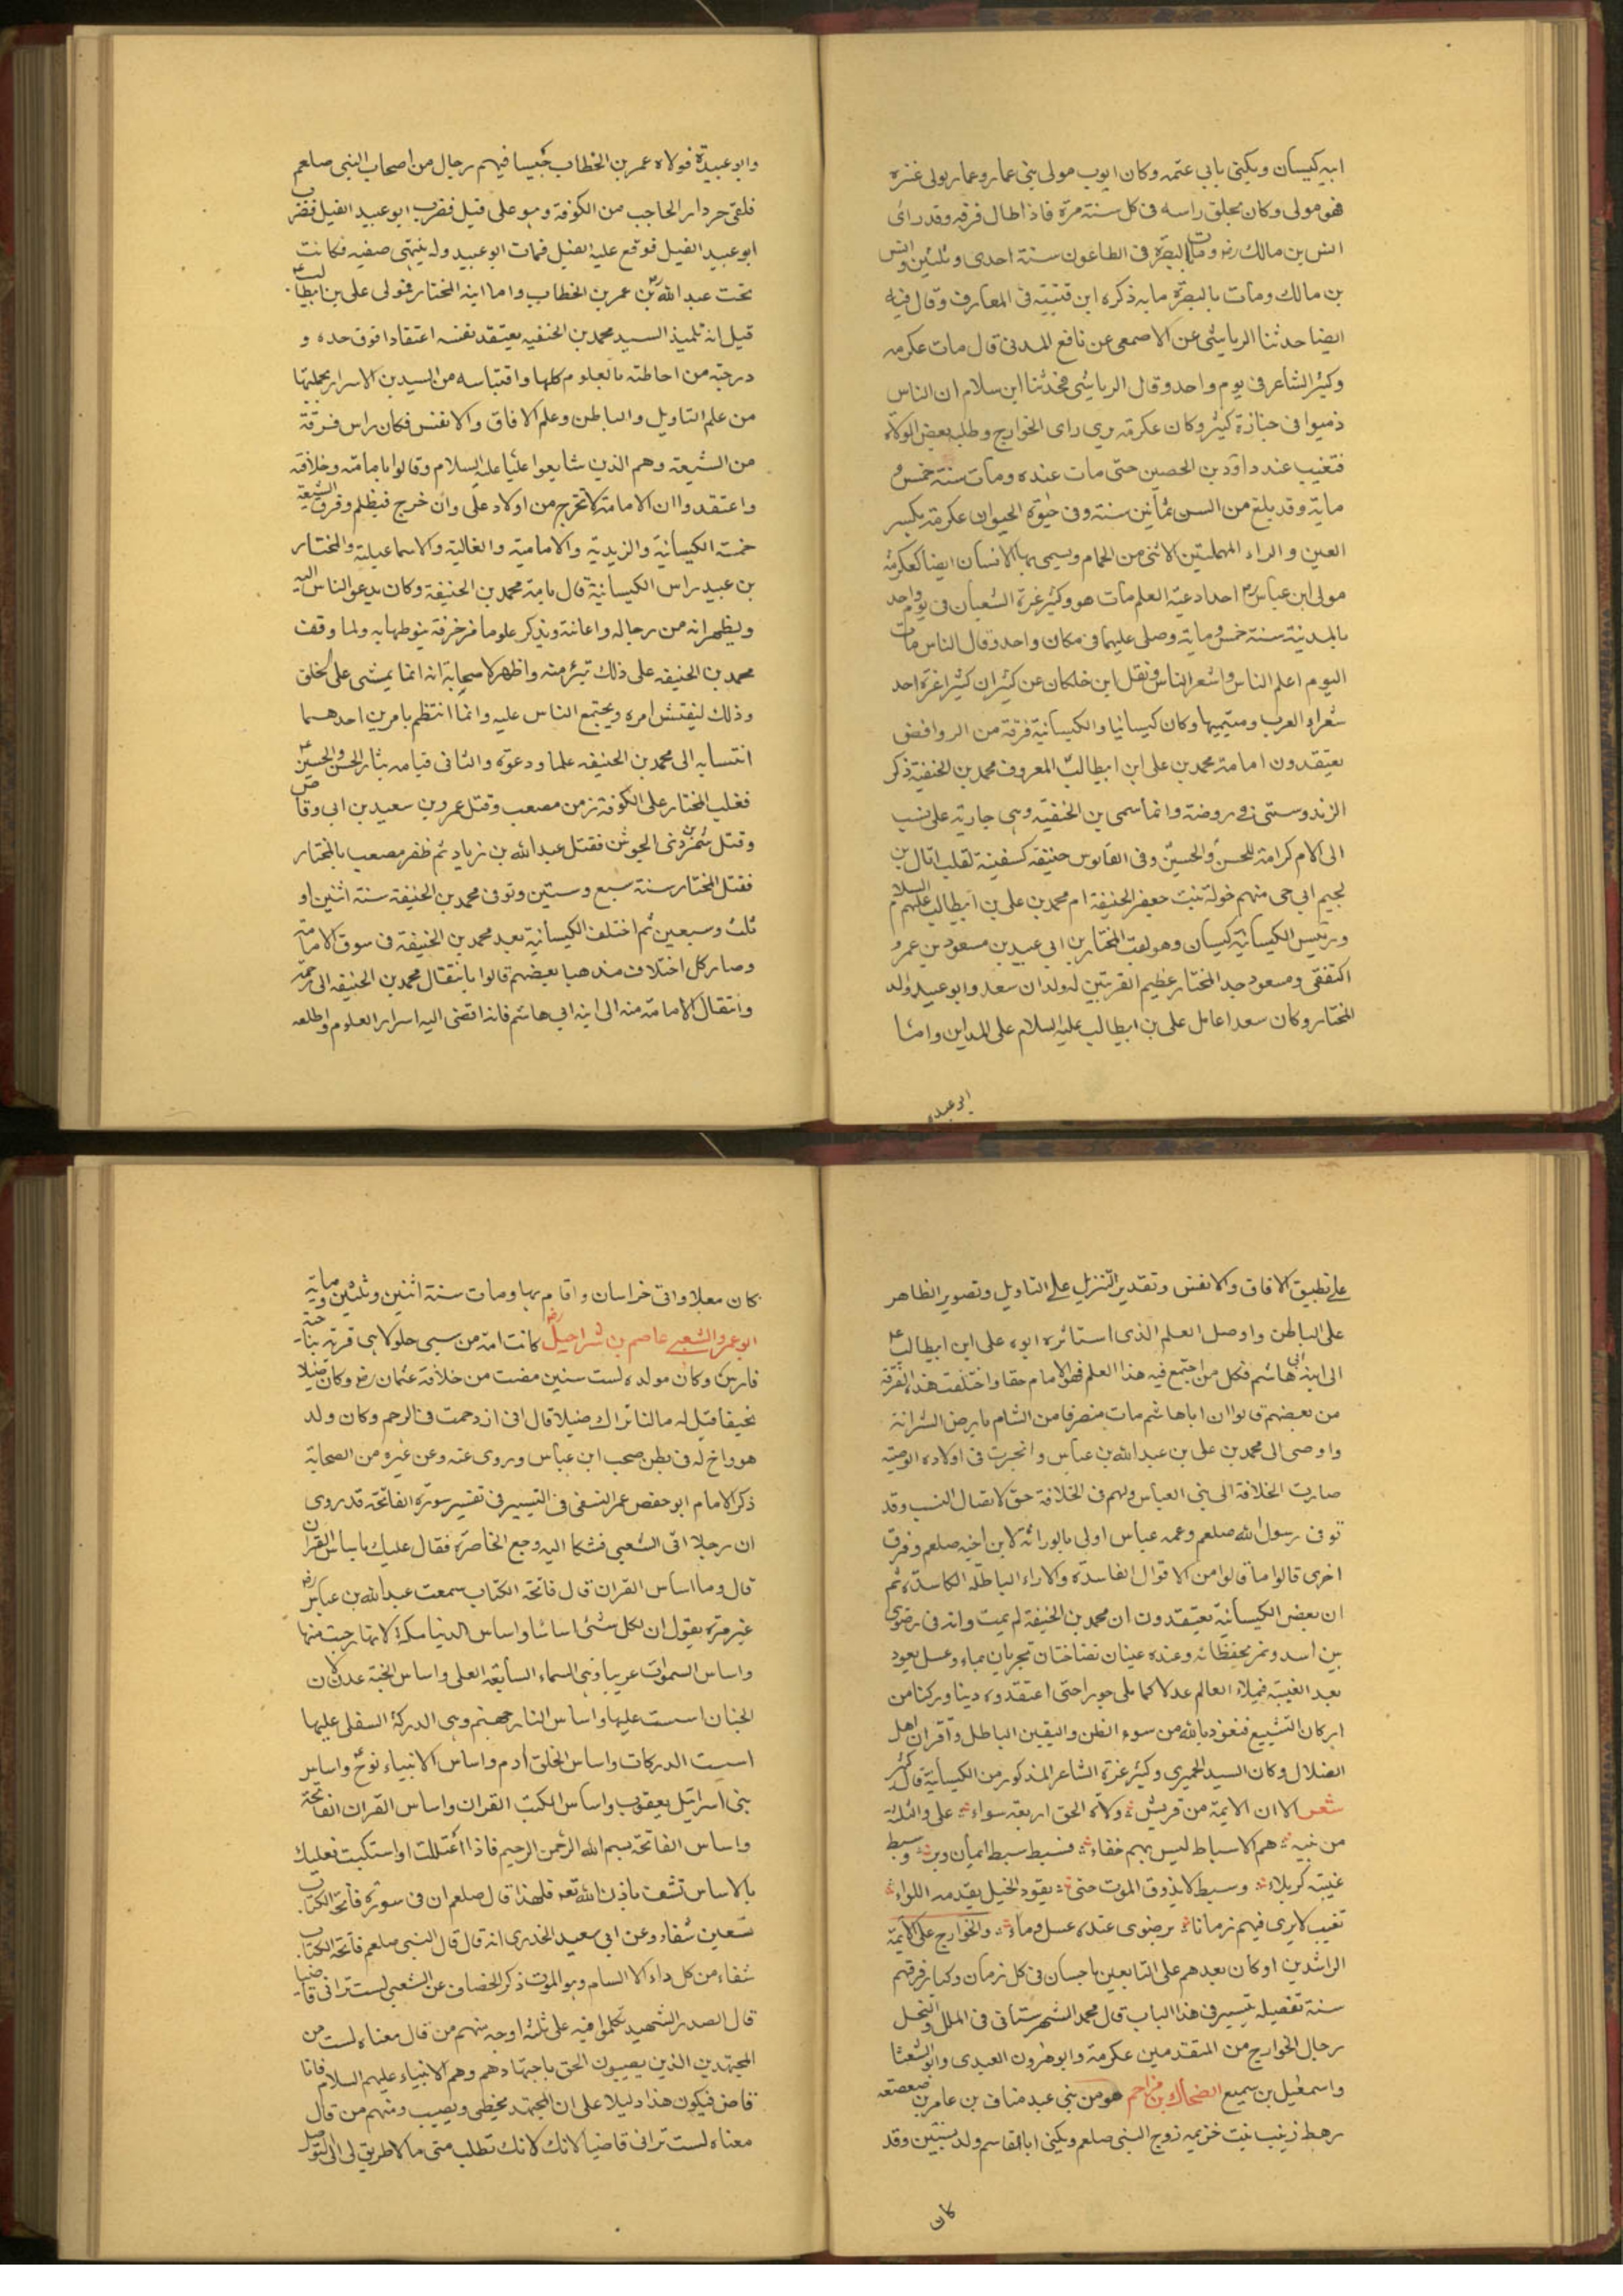 ابيه كيسان ويكنى بابي عتمه وكان ايوب مولى بني عمار وعمار مولى عنزه
فهو مولى وكان يحلق راسه في كل سنة مرة فاذا طال فرقه وقد راى
انس بن مالك رض ومات بالبصرة في الطاعون سنة احدى وثلثين وانس
بن مالك ومات بالبصرة مابه ذكره ابن قتيبه في المعارف وقال فيه
ايضا حدثنا الرياشي عن الاصمعي عن نافع المدني قال مات عكرمه
وكثير الشاعر في يوم واحد وقال الرياشي فحدثنا ابن سلام ان الناس
ذهبوا في جنازة كثير وكان عكرمة يرى راى الخوارج وطلبه بعض الولاة
فتغيب عند داود بن الحصين حتى مات عنده ومات سنة خمس و
ماية وقد بلغ من السن ثمانين سنة وفي حيوة الحيوان عكرمة بكسر
العين والراء المهملتين الانثى من الحمام ويسمى بها الانسان ايضا كعكرمة
مولى ابن عباس رض احد ادعية العلم مات هو وكثير عزة الشعبان في يوم واحد
بالمدينة سنة خمس وماية وصلى عليهما في مكان واحد وقال الناس مات
اليوم اعلم الناس واشعر الناس ونقل ابن خلكان عن كثير ان كثيرا عزة احد
شعراء العرب ومتيميها وكان كيسانيا والكيسانية فرقة من الروافض
يعتقدون امامة محمد بن علي ابن ابيطالب المعروف محمد بن الحنفية ذكر
الزندوستي في روضة وانما سمى بن الحنفيه وهي جارية على نسب
الى الام كرامة للحسن والحسين وفي القاموس حنيفه كسفينة لقب اثال بن
لجيم ابي حي منهم خولة بنت جعفر الحنفية ام محمد بن علي بن ابيطالب عليهم السلام
ورئيس الكيسانية كيسان وهو لقب المختار بن ابي عبيد بن مسعود بن عمرو
الثقفي ومسعود جد المختار عظيم القريتين له ولدان سعد وابو عبيد والد
المختار وكان سعد اعامل علي بن ابيطالب عليه السلام على المداين واما
ابو عبيده
وابو عبيدة فولاه عمر بن الخطاب جيشا فيهم رجال من اصحاب النبي صلعم
فلقى جردار الحاجب من الكوفة وهو على فيل فضرب ابو عبيد الفيل فضرب
ابو عبيد الفيل فوقع عليه الفيل فمات ابو عبيد وله بنتى صفيه فكانت
تحت عبد الله بن عمر بن الخطاب واما ابنه المختار فتولى علي بن ابيطالب
قيل انه تلميذ السيد محمد بن الحنفيه يعتقد نفسه اعتقادا فوق حده و
درجته من احاطته بالعلوم كلها واقتباسه من السيد بن الاسرار بجملتها
من علم التاويل والباطن وعلم الافاق والانفس فكان راس فرقة
من الشيعة وهم الذين شايعوا عليا عليه السلام وقالوا بامامته وخلافته
واعتقدوا ان الامامة لا تخرج من اولاد علي وان خرج فبظلم وفرق الشيعة
خمسة الكيسانية والزيدية والامامية والغالية والاسماعيلية والمختار
بن عبيد راس الكيسانية قال بامة محمد بن الحنيفة وكان يدعو الناس اليه
ويظهر انه من رجاله واعانته ويذكر علوما مزخرفة ينوطها به ولما وقف
محمد بن الحنيفه على ذلك تبرء منه واظهر لاصحابه انه انما يمشي على الخلق
وذلك ليفتش امره ويجتمع الناس عليه وانما انتظم بامرين احدهما
انتسابه الى محمد بن الحنيفه علما ودعوة والثاني قيامه بثار الحسن والحسين
فغلب المختار على الكوفة زمن مصعب وقتل عمر بن سعيد بن ابي وقاص
وقتل شمر بن ذى الجوشن فقتل عبد الله بن زياد ثم ظفر مصعب بالمختار
فقتل المختار سنة سبع وستين وتوفى محمد بن الحنيفة سنة اثنين او
ثلث وسبعين ثم اختلف الكيسانية بعد محمد بن الحنيفة في سوق الامامة
وصار كل اختلاف مذهبا بعضهم قالوا بانتقال محمد بن الحنيفه الى رحمة
وانتقال الامامة منه الى ابنه ابي هاشم فانه افضى اليه اسرار العلوم واطلعه
على تطبيق الافاق والانفس وتقدير التنزيل على التاويل وتصوير الظاهر
على الباطن واوصل العلم الذى استاثره ابوه على ابن ابيطالب
الى ابنه ابي هاشم فكل من اجتمع فيه هذا العلم فهو الامام حقا واختلفت هذه الفرقة
من بعضهم قالوا ان اباهاشم مات منصرفا من الشام بارض الشرانة
واوصى الى محمد بن علي بن عبد الله بن عباس وانجرت في اولاده الوصية
صارت الخلافة الى بني العباس ولهم في الخلافة حق لاتصال النسب وقد
توفى رسول الله صلعم وعمه عباس اولى بالوراثة لابن اخيه صلعم وفرق
اخرى قالوا ما قالوا من الاقوال الفاسدة والاراء الباطلة الكاسدة ثم
ان بعض الكيسانية يعتقدون ان محمد بن الحنيفة لم يمت وانه في رضوى
بين اسد ونمر يحفظانه وعنده عينان نضاختان تجريان بماء وعسل يعود
بعد الغيبة فيملاء العالم عدلا كما ملى جورا حتى اعتقدوه دينا وركنا من
اركان التشيع فنعوذ بالله من سوء الظن واليقين الباطل واقران اهل
الضلال وكان السيد الحميري وكثير عزة الشاعر المذكور من الكيسانية قال كثير
شعر الا ان الايمة من قريش ولاة الحق اربعة سواء علي والثلثة
من نبيه هم الاسباط ليس بهم خفاء فسبط سبط ايمان وبر وسبط
غيبته كربلاء وسبط لا يذوق الموت حتى يقود الخيل يقدمه اللواء
تغيب لا يرى فيهم زمانا برضوى عنده عسل وماء والخوارج على الايمة
الراشدين او كان بعدهم على التابعين باحسان في كل زمان وكبار فرقهم
ستة تفصيله تيسير في هذا الباب قال محمد الشهرستاني في الملل والنحل
رجال الخوارج من المتقدمين عكرمة وابو هرون العبدي وابو الشعثا
واسمعيل بن سميع الضحاك بن مزاحم هو من بني عبد مناف بن عامر بن صعصعه
رهط زينب بنت خزيمه زوج النبي صلعم ويكنى اباالقاسم ولد بسنتين وقد
كان
كان معلا واتى خراسان واقام بها ومات سنة اثنين وثلثين وماية
ابو عمرو الشعبي عاصم بن شراحيل رض كانت امة من سبى جلولا هى قرية بناحية
فارس وكان مولده لست سنين مضت من خلافة عثمان رض وكان ضئيلا
نحيفا قيل له مالنا نراك ضئيلا قال اني ازدحمت في الرحم وكان ولد
هو واخ له في بطن صحب ابن عباس وروى عنه وعن غيره من الصحابة
ذكر الامام ابو حفص عمر النسفي في التيسير في تفسير سورة الفاتحة قد روى
ان رجلا اتى الشعبي فشكا اليه وجع الخاصرة فقال عليك باساس القران
قال وما اساس القران قال فاتحة الكتاب سمعت عبد الله بن عباس رض
غير مرة يقول ان لكل شئى اساسا واساس الدنيا مكة لانها دحيت منها
واساس السموات عريبا وهي السماء السابعة العلى واساس الجنة عدن لان
الجنان اسست عليها واساس النار جهنم وهي الدركة السفلى عليها
اسست الدركات واساس الخلق ادم واساس الانبياء نوح واساس
بني اسرائيل يعقوب واساس الكتب القران واساس القران الفاتحة
واساس الفاتحة بسم الله الرحمن الرحيم فاذا اعتللت او استكيت فعليك
بالاساس تشف باذن الله تعه فلهذا قال صلعم ان في سورة فاتحة الكتاب
تسعين شفاء وعن ابي سعيد الخدري انه قال قال النبي صلعم فاتحة الكتاب
شفاء من كل داء الا السام وهو الموت ذكر الخصاف عن الشعبي لست تراني قاضيا
قال الصدر الشهيد تكلموا فيه على ثلثة اوجه منهم من قال معناه لست من
المجتهدين الذين يصيبون الحق باجتهادهم وهم الانبياء عليهم السلام فانا
قاض فيكون هذا دليلا على ان المجتهد يخطى ويصيب ومنهم من قال
معناه لست تراني قاضيا لانك لانك تطلب منى ما لا طريق لى الى التوصل